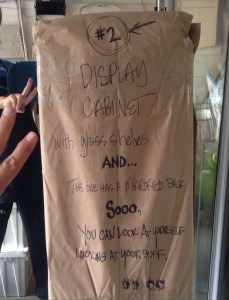 #2
DISPLAY
CABINET
with glass shelves
AND...
THIS ONE HAS A MIRRORED BACK
Sooo,
YOU CAN LOOK AT YOURSELF
LOOKING AT YOUR STUFF